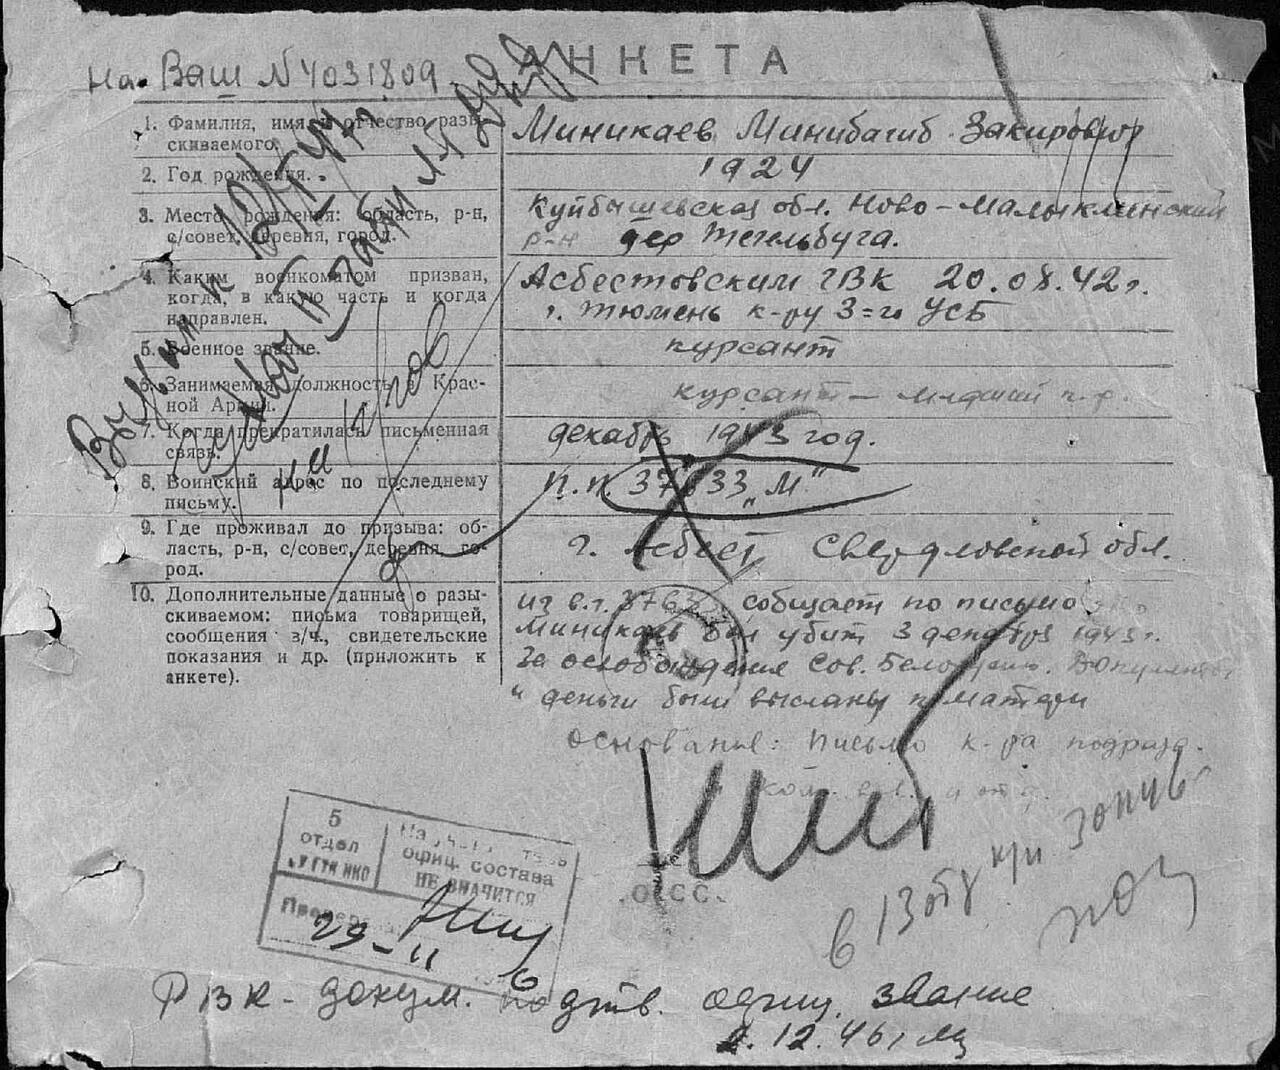 АНКЕТА
На Ваш N 4031809
1. Фамилия, имя и отчество разы-
скиваемого.
Миникаев Минибагиб Закирович
2. Год рождения.
1924
3. Место рождения: область, р-н,
с/совет, деревня, город.
Куйбышевская обл. Ново-Малыклинский
р-н дер
4. Каким военкоматом призван,
когда, в какую часть и когда
направлен.
Асбестовским ГВК 20.08.42 г.
г. Тюмень к-ру 3=го УСБ
5. Военное звание.
курсант
6. Занимаемая должность в Крас-
ной Армии.
курсант —
7. Когда прекратилась письменная
связь.
декабрь 1943 год.
8. Воинский адрес по последнему
письму.
п.п. 37633 „М“
9. Где проживал до призыва: об-
ласть, р-н, с/совет, деревня, го-
род.
г. Асбест, Свердловской обл.
10. Дополнительные данные о разы-
скиваемом: письма товарищей,
сообщения в/ч., свидетельские
показания и др. (приложить к
анкете).
из в.ч. собщает по письмо
Миникаев был убит 3 декабря 1943 г.
За освобождения Сов. Белоруссию. Документы
и деньги были высланы к матери
Основание: Письмо к-ра подразд.
5
отдел
УГТИ НКО
офиц. состава
НЕ ЗНАЧИТСЯ
Провер
29-11
в 13 отд при
РВК - докум. подтв. офиц. звание
12.46 г